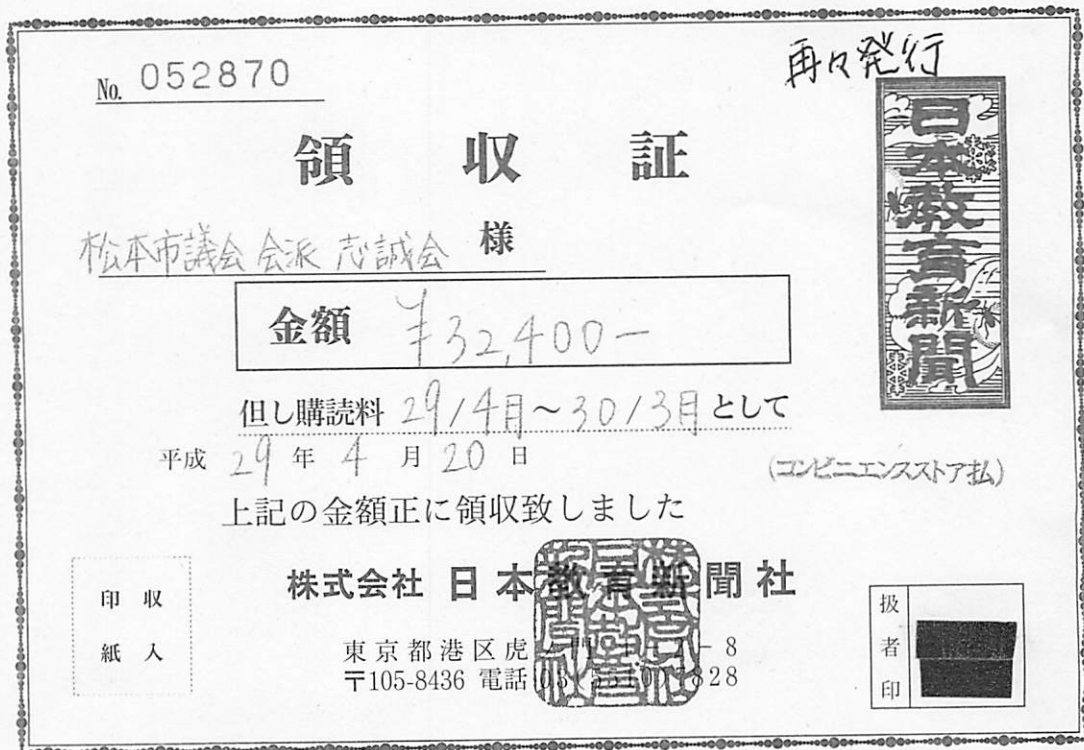 再々発行
No. 052870
日本教育新聞
領収証
松本市議会 会派 志誠会 様
金額 ¥32,400-
但し購読料 29/4月～30/3月 として
平成 29 年 4 月 20 日
(コンビニエンスストア払)
上記の金額正に領収致しました
株式会社 日本教育新聞社
東京都港区虎
〒105-8436 電話
収入
印紙
扱者印